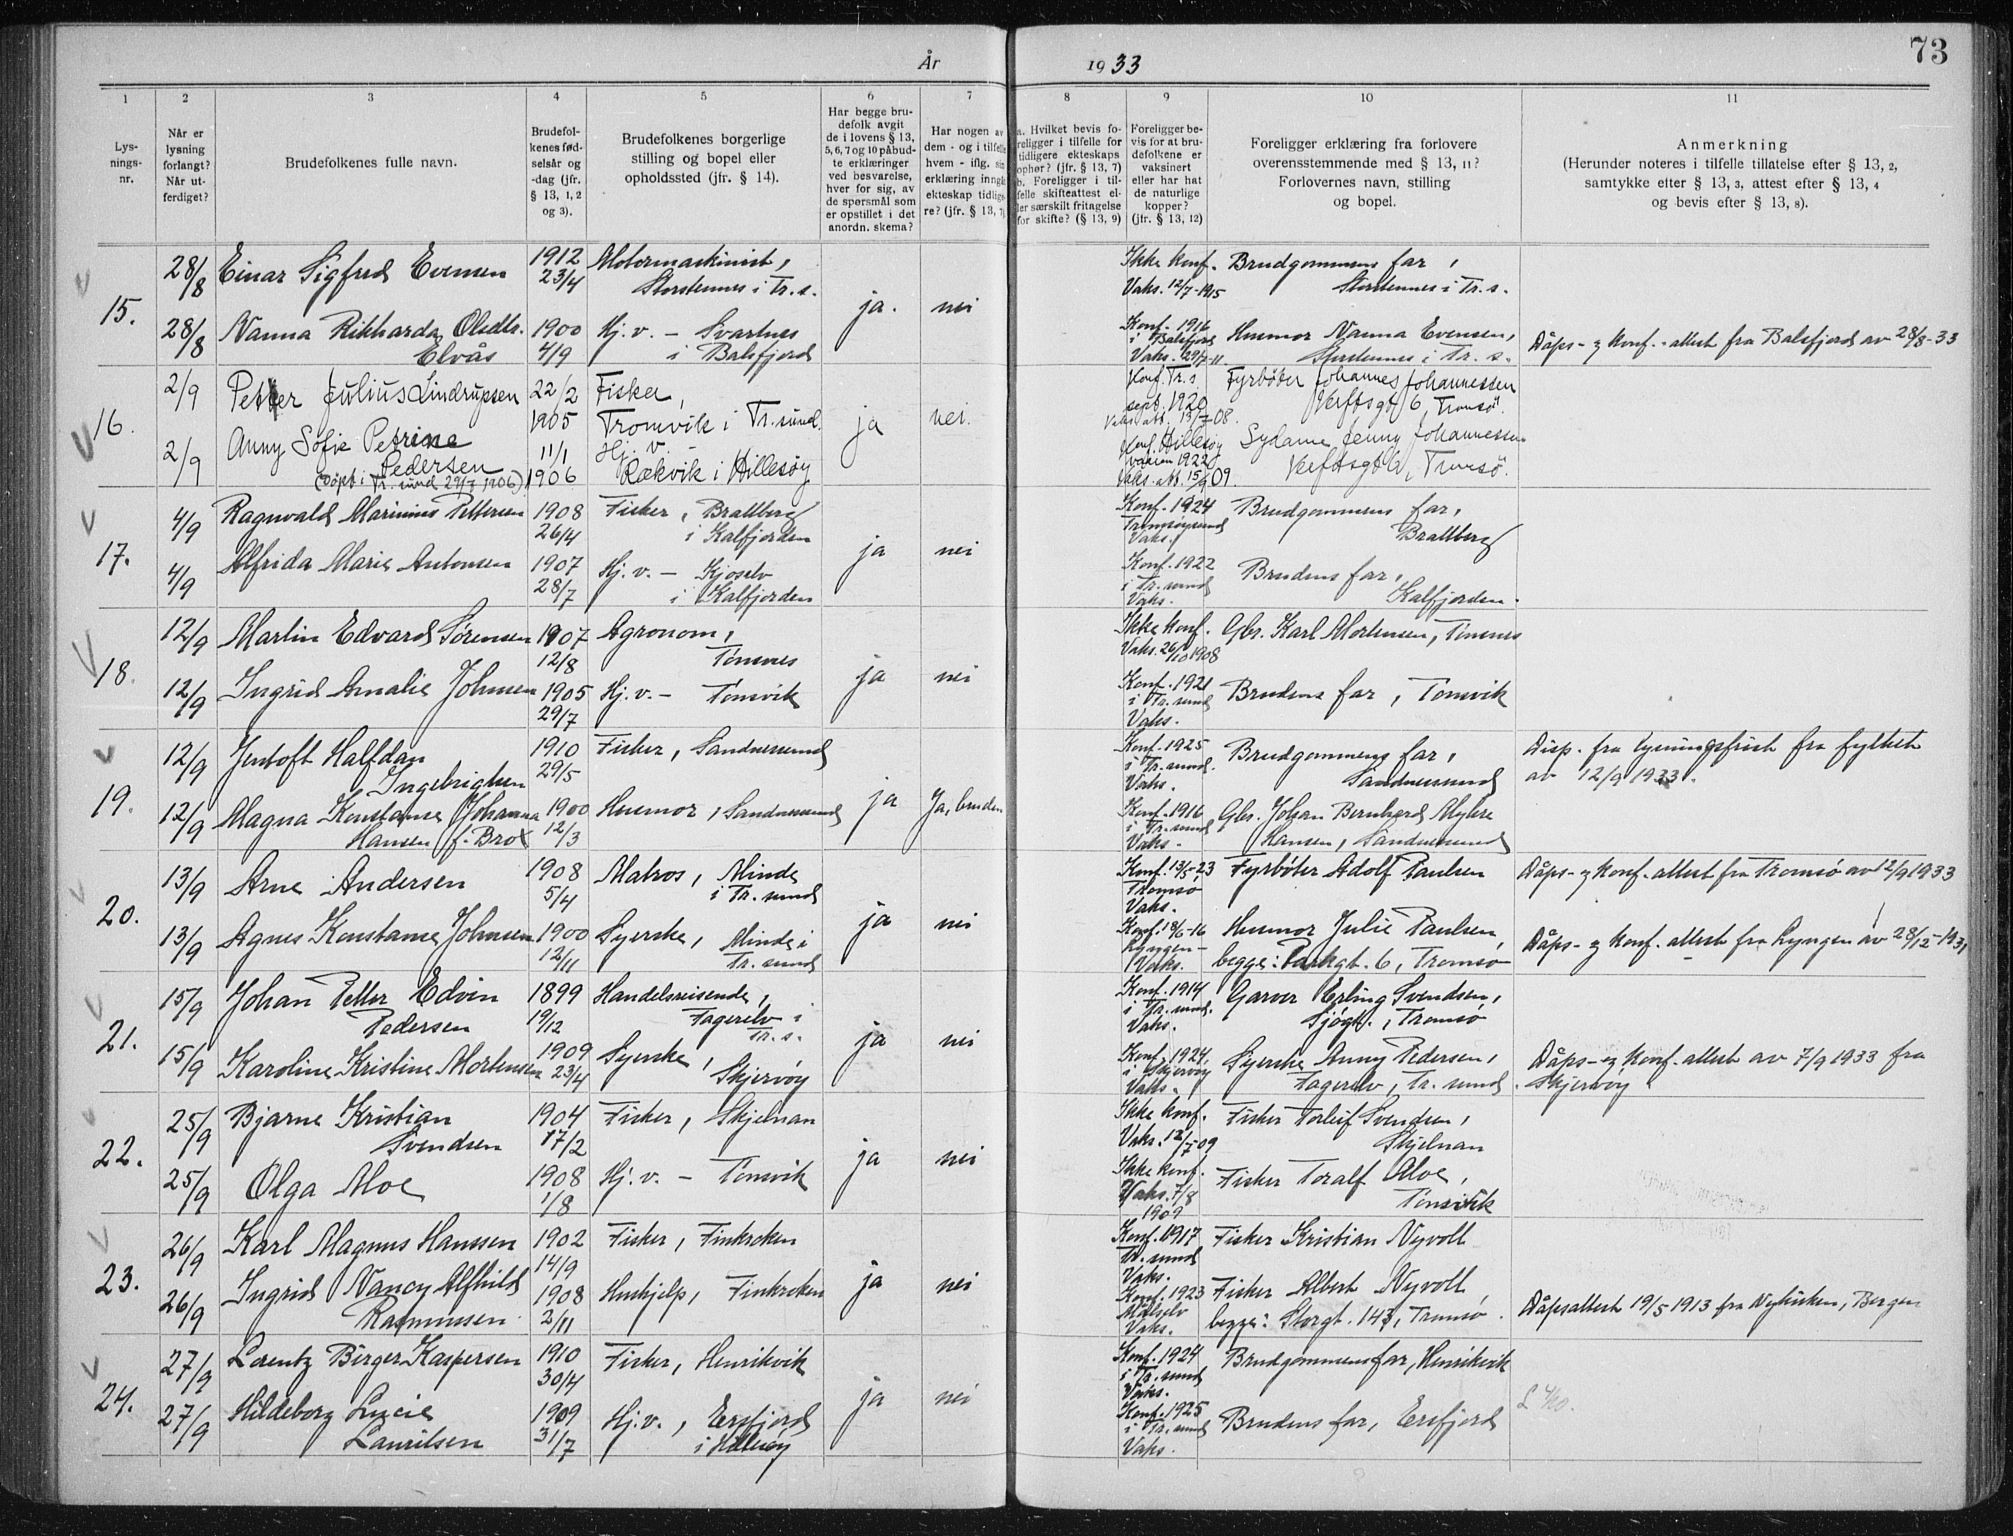 År 1933
73
1
2
3
4
5
6
7
8
9
10
11
Lys-
nings-
nr.
Når er
lysning
forlangt?
Når ut-
ferdiget?
Brudefolkenes fulle navn.
Brudefol-
kenes fød-
selsår og
-dag (jfr.
§ 13, 1, 2
og 3).
Brudefolkenes borgerlige
stilling og bopel eller
opholdssted (jfr. § 14).
Har begge bru-
defolk avgit
de i lovens § 13,
5, 6, 7 og 10 påbud-
te erklæringer
ved besvarelse,
hver for sig, av
de spørsmål som
er opstillet i det
anordn. skema?
Har nogen av
dem - og i tilfelle
hvem - iflg. sin
erklæring inngåt
ekteskap tidlige-
re? (jfr. § 13, 7)
a. Hvilket bevis fo-
religger i tilfelle for
tidligere ekteskaps
ophør? (jfr. § 13, 7)
b. Foreligger i til-
felle skifteattest el-
ler særskilt fritagelse
for skifte? (§ 13, 9)
Foreligger be-
vis for at bru-
defolkene er
vaksinert
eller har hat
de naturlige
kopper?
(jfr. § 13, 12)
Foreligger erklæring fra forlovere
overensstemmende med § 13, 11?
Forlovernes navn, stilling
og bopel.
Anmerkning
(Herunder noteres i tilfelle tillatelse efter § 13, 2,
samtykke efter § 13, 3, attest efter § 13, 4
og bevis efter § 13, 8).
15.
28/8 Einar Sigfred Evensen 1912 23/4 Motormaskinist,
Storstennes i Tr. s.
ja. nei
Ikke konf. Vaks. 12/7-1915
Brudgommens far,
Storstennes i Tr. s.
28/8 Nanna Rikharda Olsdtr.
Elvås
1900 4/9 Hj. v. - Svartnes
i Balsfjord
Konf. 1916
i Balsfjord
Vaks. 29/7-11
Husmor Nanna Evensen,
Storstennes i Tr. s.
Dåps- og konf.-attest fra Balsfjord av 28/8-33
16.
2/9 Petter Julius Lindrupsen 22/2 1905 Fisker,
Tromvik i Tr. sund.
ja nei.
Konf. Tr. s
sept. 1920
Vaks. att. 13/7-08.
Fyrbøter Johannes Johannessen
Verftsgt 6, Tromsö.
2/9 Anny Sofie Petrine
Pedersen
(Döpt i Tr. sund 29/7 1906)
11/1 1906 Hj. v.
Rækvik i Hillesøy
Konf. Hillesøy
våren 1922
Vaks. att. 15/9 09.
Sydame Jenny Johannessen
Verftsgt 6, Tromsö.
17.
4/9 Ragnvald Marinius Pettersen 1908 26/4 Fisker, Brattberg
i Kalfjorden
ja nei
Konf. 1924
Tromsøysund
Vaks.
Brudgommens far,
Brattberg
4/9 Alfrida Marie Antonsen 1907 28/7 Hj. v. - Kjoselv
i Kalfjorden
Konf. 1922
i Tr. sund
Vaks.
Brudens far,
Kalfjorden.
18.
12/9 Martin Edvard Sørensen 1907 12/8 Agronom,
Tønsnes
ja nei
Ikke konf.
Vaks. 26/10 1908
Gbr. Karl Mortensen, Tønsnes
12/9 Ingrid Amalie Johnsen 1905 29/7 Hj. v. - Tønsvik
Konf. 1921
i Tr. sund
Vaks.
Brudens far, Tønsvik
19.
12/9 Jentoft Halfdan
Ingebrigtsen
1910 29/5 Fisker, Sandnessund
ja Ja, bruden
Konf. 1925
i Tr. sund.
Vaks.
Brudgommens far,
Sandnessund
Disp. fra lysningsfrist fra fylket
av 12/9 1933.
12/9 Magna Konstanse Johanna
Hansen f. Brox
1900 12/3 Husmor, Sandnessund
Konf. 1916
i Tr. sund
Vaks.
Gbr. Johan Bernhard Myhre
Hansen, Sandnessund
20.
13/9 Arne Andersen 1908 5/4 Matros, Minde
i Tr. sund
ja nei
Konf. 13/5-23
Tromsø
Vaks.
Fyrbøter Adolf Paulsen
Dåps- og konf.-attest fra Tromsø av 12/9 1933
13/9 Agnes Konstanse Johnsen 1900 12/11 Syerske, Minde i
Tr. sund
Konf. 18/6-16
Lyngen -
Vaks.
Husmor Julie Paulsen,
begge: Parkgt. 6, Tromsø
Dåps- og konf.-attest fra Lyngen av 28/12-1931
21.
15/9 Johan Petter Edvin
Pedersen
1899 19/12 Handelsreisende,
Fagerelv i
Tr. s.
ja nei
Konf. 1914
i Tr. sund.
Vaks.
Garver Erling Svendsen,
Sjøgt., Tromsø
15/9 Karoline Kristine Mortensen 1909 23/4 Syerske,
Skjervøy
Konf. 1924
i Skjervøy
Vaks.
Syerske Anny Pedersen,
Fagerelv, Tr. sund.
Dåps- og konf.-attest av 7/9 1933 fra
Skjervøy
22.
25/9 Bjarne Kristian
Svendsen
1904 17/2 Fisker, Skjelnan
ja nei
Ikke konf.
Vaks. 12/7-09
Fisker Torleif Svendsen,
Skjelnan
25/9 Olga Moe 1908 1/8 Hj. v. - Tønsvik
Ikke konf.
Vaks. 7/8
1909
Fisker Toralf Moe,
Tønsvik
23.
26/9 Karl Magnus Hanssen 1902 14/9 Fisker, Finkroken
ja nei
Konf. 1917
Tr. sund
Vaks.
Fisker Kristian Nyvoll
26/9 Ingrid Nancy Alfhild
Rasmussen
1908 2/11 Hushjelp, Finkroken
Konf. 1923
Målselv
Vaks.
Fisker Albert Nyvoll,
begge: Storgt. 143, Tromsø.
Dåpsattest 19/5 1913 fra Nykirken, Bergen
24.
27/9 Lorentz Birger Kaspersen 1910 30/4 Fisker, Henrikvik
ja nei
Konf. 1924
i Tr. sund
Vaks.
Brudgommens far, Henrikvik
27/9 Hildeborg Lucie
Lauritsen
1909 31/7 Hj. v., Ersfjord
i Hillesøy
Konf. 1925
i Tr. sund
Vaks.
Brudens far, Ersfjord